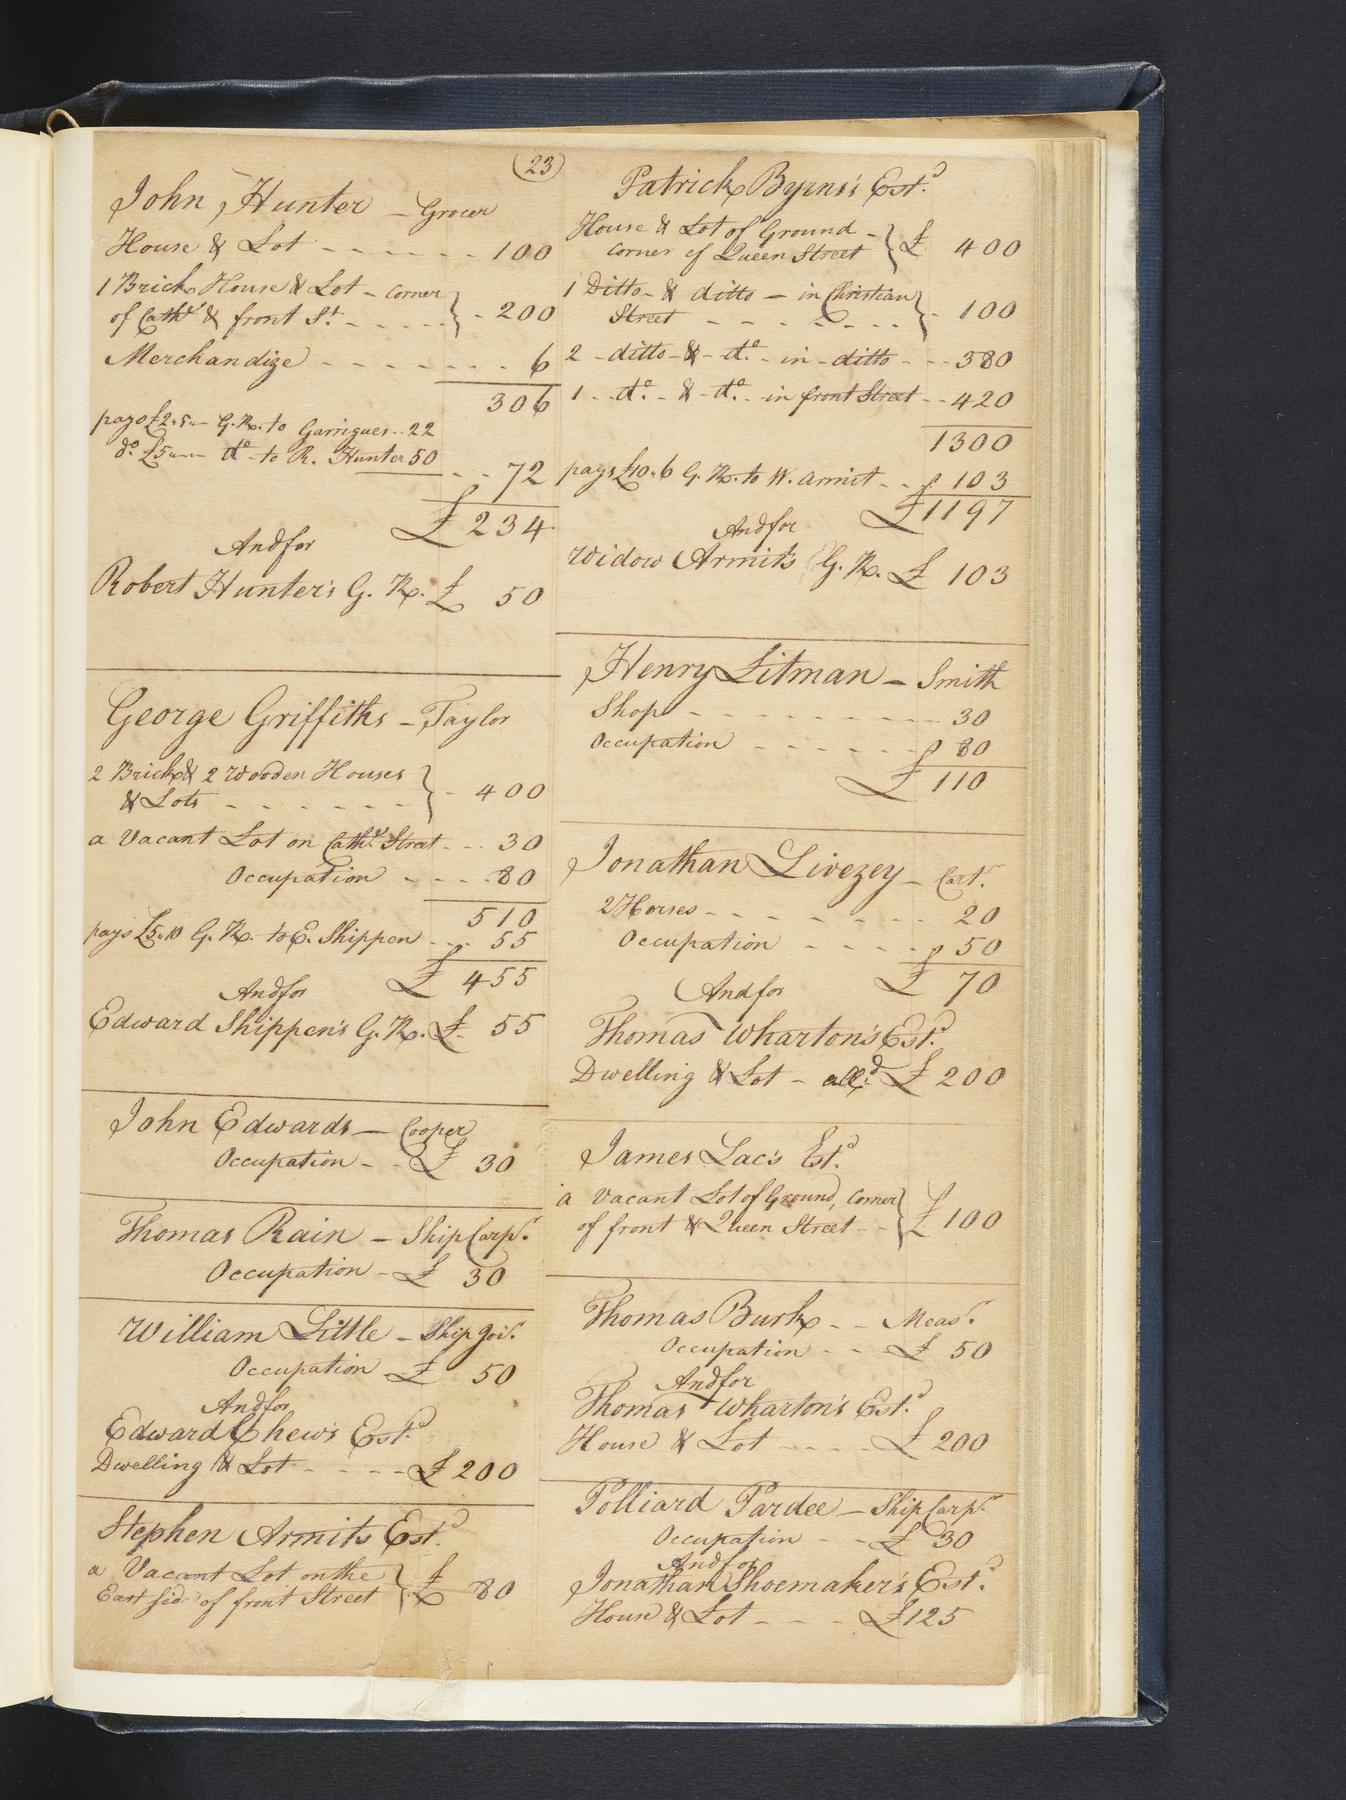 (23)
John Hunter - Grocer
House & Lot - - - - - - 100
1 Brick House & Lot - Corner
of Cath.e & front St. - - - - - } - 200
Merchandize - - - - - - - 6
306
pays £2.5.- G.R. to Garrigues - - 22
do. £5.-.- do to R. Hunter 50
- - 72
£ 234
And for
Robert Hunter's G. R. £ 50
George Griffiths - Taylor
2 Brick & 2 Wooden Houses
& Lots - - - - - - - } - 400
a Vacant Lot on Cath.e Street - - - 30
Occupation - - - - 80
510
pays £5.10 G. R. to E. Shippen - - - 55
£ 455
And for
Edward Shippen's G. R. £ 55
John Edwards - Cooper
Occupation - - £ 30
Thomas Rain - Ship Carpr.
Occupation - £ 30
William Little - Ship Joir.
Occupation £ 50
And for
Edward Chew's Estd.
Dwelling & Lot - - - - £ 200
Stephen Armits Estd.
a Vacant Lot on the
East side of front Street } £ 80
Patrick Byrns's Estd.
House & Lot of Ground -
Corner of Queen Street } £ 400
1 Ditto - & ditto - in Christian
Street - - - - - - - } - 100
2 - ditto - & - do. - in - ditto - - - 380
1 - - do. - & - do. - - in front Street - - 420
1300
pays £10.6 G. R. to W. Armit - - - 103
£ 1197
And for
Widow Armit's G. R. £ 103
Henry Litman - Smith
Shop - - - - - - - - - - 30
Occupation - - - - - - 80
£ 110
Jonathan Livezey - Cartr.
2 Horses - - - - - - - - 20
Occupation - - - - - 50
£ 70
And for
Thomas Wharton's Estd.
Dwelling & Lot - alld. £ 200
James Lac's Estd.
a Vacant Lot of Ground, Corner
of front & Queen Street - - } £ 100
Thomas Burk - - Measr.
Occupation - - £ 50
And for
Thomas Wharton's Estd.
House & Lot - - - - £ 200
Polliard Pardee - Ship Carpr.
Occupation - - £ 30
And for
Jonathan Shoemaker's Estd.
House & Lot - - - - £ 125